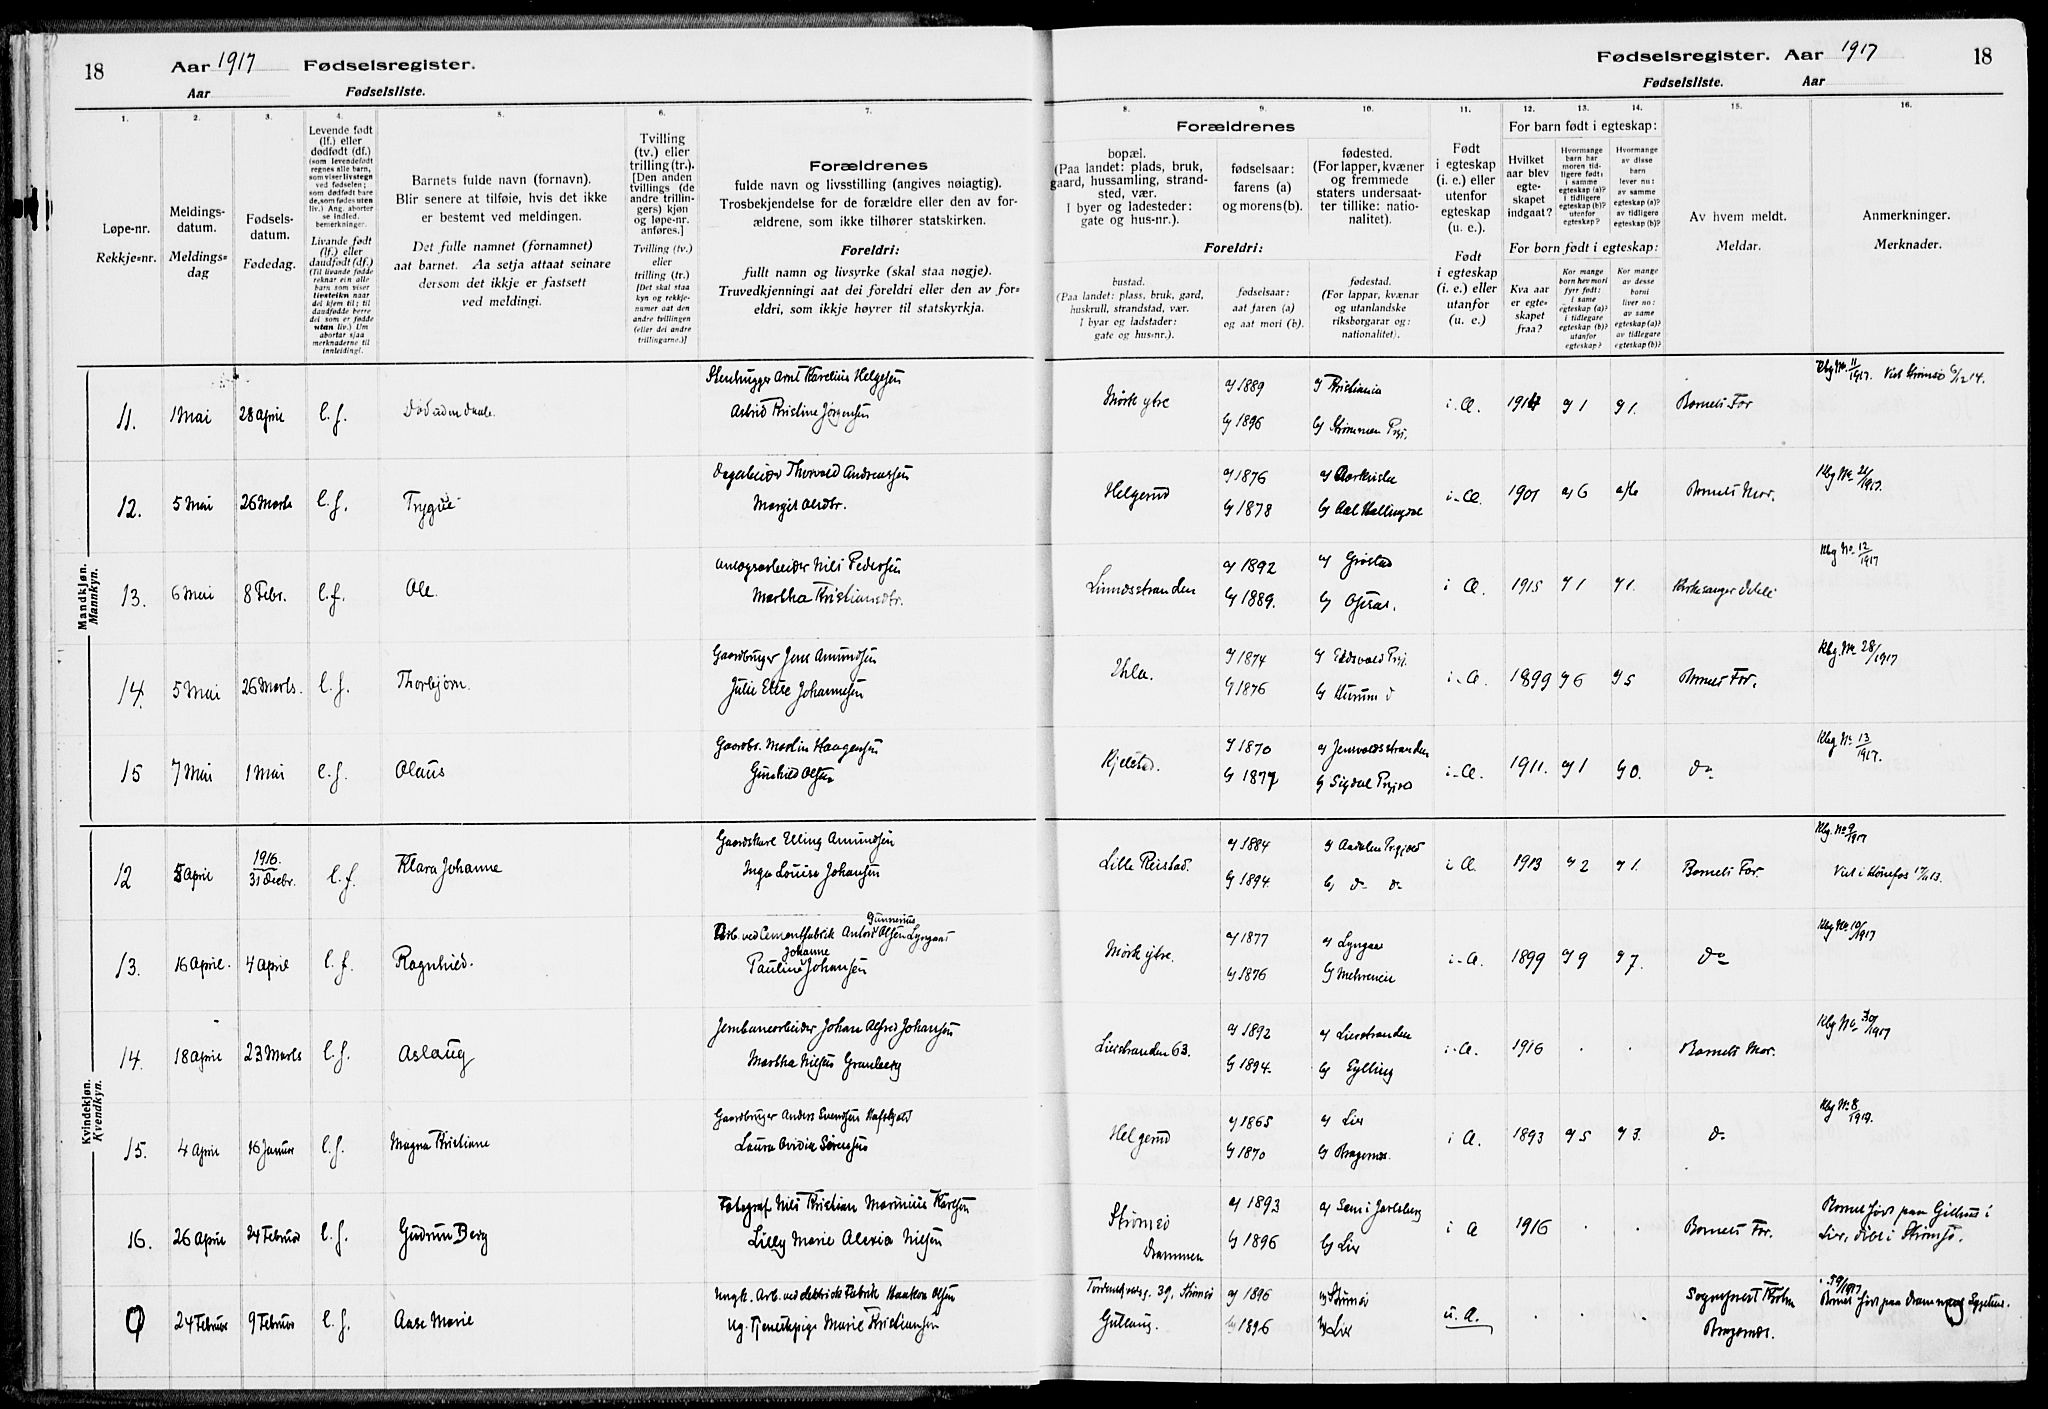 18
Aar 1917 Fødselsregister.
Aar Fødselsliste.
Fødselsregister. Aar 1917
18
Fødselsliste. Aar
1.
2.
3.
4.
5.
6.
7.
8.
9.
10.
11.
12.
13.
14.
15.
16.
Løpe-nr.
Rekkje-nr.
Meldings-
datum.
Meldings-
dag
Fødsels-
datum.
Fødedag.
Levende født
(lf.) eller
dødfødt (df.)
(som levendefødt
regnes alle barn,
som viser livstegn
ved fødselen;
som dødfødt bare
de, som fødes uten
liv.) Ang. aborter
se indled.
bemerkninger.
Livande født
(lf.) eller
daudfødt (df.)
(Til livande fødde
reknar ein alle
barn som viser
livsteikn naar
dei kjem til; til
daudfødde berre
dei som er fødde
utan liv.) Um
abortar sjaa
merknaderne til
innleiding).
Barnets fulde navn (fornavn).
Blir senere at tilføie, hvis det ikke
er bestemt ved meldingen.
Det fulle namnet (fornamnet)
aat barnet. Aa setja attaat seinare
dersom det ikkje er fastsett
ved meldingi.
Tvilling
(tv.) eller
trilling (tr.).
[Den anden
tvillings (de
andre trillin-
gers) kjøn
og løpe-nr.
anføres.]
Tvilling (tv.)
eller
trilling (tr.)
[Det skal staa
kyn og rekkje-
numer aat den
andre tvillingen
(eller dei andre
trillingarne.)]
Forældrenes
fulde navn og livsstilling (angives nøiagtig).
Trosbekjendelse for de forældre eller den av for-
ældrene, som ikke tilhører statskirken.
Foreldri:
fullt namn og livsyrke (skal staa nøgje).
Truvedkjenningi aat dei foreldri eller den av for-
eldri, som ikkje høyrer til statskyrkja.
Forældrenes
bopæl.
(Paa landet: plads, bruk,
gaard, hussamling, strand-
sted, vær.
I byer og ladesteder:
gate og hus-nr.).
fødselsaar:
farens (a)
og morens (b).
fødested.
(For lapper, kvæner
og fremmede
staters undersaat-
ter tillike: natio-
nalitet).
Foreldri:
bustad.
(Paa landet: plass, bruk, gard,
huskrull, strandstad, vær.
I byar og ladstader:
gate og hus-nr.).
fødselsaar:
aat faren (a)
og aat mori (b).
fødestad.
(For lappar, kvænar
og utanlandske
riksborgarar og:
nationalitet).
Født
i egteskap
(i. e.) eller
utenfor
egteskap
(u. e.).
Født
i egteskap
(i. e.) eller
utanfor
(u. e.)
For barn født i egteskap:
Hvilket
aar blev
egte-
skapet
indgaat?
Hvormange
barn har
moren tid-
ligere født:
i samme
egteskap (a)?
i tidligere
egteskap (b)?
utenfor
egteskap?
Hvormange
av disse
barn
lever nu:
av samme
egteskap (a)?
av tidligere
egteskap (b)?
For born født i egteskap:
Kva aar
er egte-
skapet
fraa?
Kor mange
born hev mori
fyrr født:
i same
egteskap (a)?
i tidlegare
egteskap (b)?
utanfor
egteskap?
Kor mange
av desse
borni
liver no:
av same
egteskap (a)?
av tidlegare
egteskap (b)?
Av hvem meldt.
Meldar.
Anmerkninger.
Merknader.
Mandkjøn.
Mannkyn.
11. 1 Mai 28 April l. f. Død uden daab. Stenhugger Arnt Karelius Helgesen
Astrid Kristine Jørgensen
Mørk ytre a) 1889 a) Kristiania
b) 1896 b) Strømmen Prgj.
i. Æ. 1914 a) 1 a) 1. Barnets Far
Kbg No. 11/1917.
12. 5 Mai 26 Marts l. f. Trygve Thorvald Andreassen
Margit Olsdtr.
Helgerud a) 1876
b) 1878 b) Aal Hallingdal
i. Æ. 1901 a) 6 a) 6 Barnets Mor.
Kbg No 21/1917.
13. 6 Mai 8 Febr. l. f. Ole. Anlægsarbeider Nils Pedersen
Martha Kristiansdtr.
Linnesstranden a) 1892
b) 1889.
i Æ. 1915 a) 1 a) 1. Kirkesanger
Kbg No 12/1917
14. 5 Mai 26 Marts. l. f. Thorbjørn. Gaardbruger Jens Amundsen
Julie Elise Johannesen
Uhla. a) 1874 a) Eidsvold Prgj.
b) 1876 b) Hurum
i. Æ. 1899 a) 6 a) 5 Barnets Far.
Kbg No 28/1917
15 7 Mai 1 Mai l. f. Olaus Gaardbr. Martin Haagensen
Gunhild Olsen
Kjelstad. a) 1870
b) 1877 b) Sigdal Prgj.
i. Æ. 1911. a) 1 a) 0. do
Kbg No 13/1917.
Kvindekjøn.
Kvendkyn.
12 5 April 1916. 31 Decbr. l. f. Klara Johanne Gaardskarl Elling Amundsen
Inga Louise Johansen
Lille Reistad. a) 1884 a) Aadalen Prgjeld
b) 1894. b) do do
i Æ. 1913 a) 2 a) 1. Barnets Far.
Kbg. No 9/1917
Viet i Hønefos
13. 16 April. 4 April l. f. Ragnhild. Arb. ved Cementfabrik Anton Gunnerius Olsen Lyngaas
Pauline Johanne Johansen
Mørk ytre. a) 1877 a) Lyngaas
b) 1876
i. Æ. 1899 a) 9 a) 7. do
Kbg No 10/1917
14. 18 April 23 Marts l. f. Aslaug Jernbanearbeider Johan Alfred Johansen
Martha Nilsen Granberg
Lierstranden 63. a) 1892 a) Lierstranden
b) 1894. b) Sylling
i. Æ. 1916 . . Barnets Mor.
Kbg No 30/1917
15. 4 April 16 Januar l. f. Magna Kristiane Gaardbruger Anders Svendsen
Laura Ovidia Sørensen
Helgerud a) 1865 a) Lier
b) 1870 b) Bragernæs.
i Æ. 1893 a) 5 a) 3. do
Kbg No 8/1917.
16. 26 April 24 Februar l. f. Gudrun Berg Fotograf Nils Kristian Marinius Karlsen
Lilly Marie Alexia Nilsen
Strømsø
Drammen a) 1893 a) Sem i Jarlsberg
b) 1896 b) Lier
i Æ 1916 . . Barnets Far.
Barnet født paa Gilhus i
Lier, døbt i Strømsø.
0 24 Februar 9 Februar l. f. Aase Marie Ungk. Arb. ved elektrisk Fabrik Haakon Olsen
Ug. Tjenestepige Marie Kristiansen
39, Strømsø
Gullaug. a) 1896 a) Strømsø
b) 1896 b) Lier
u. Æ. . . . Sogneprest
Bragernæs.
Barnet født paa Drammens Sygehus.